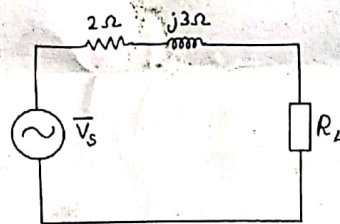 2Ω j3Ω
V̄s
R_L